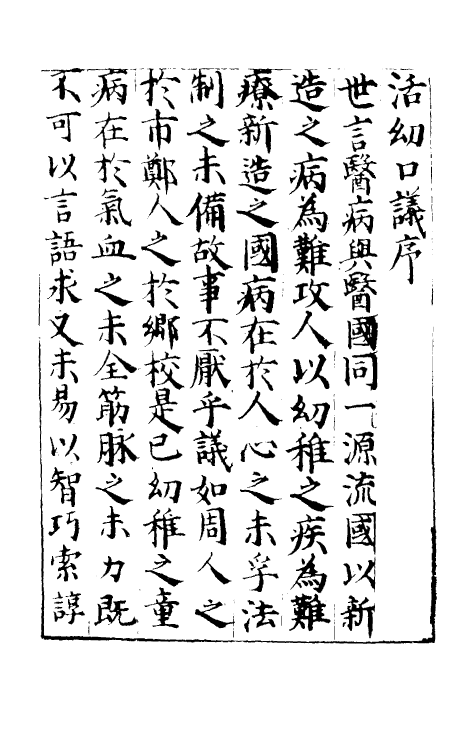 活幼口議序
世言醫病與醫國同一源流國以新
造之病為難攻人以幼稚之疾為難
療新造之國病在於人心之未孚法
制之未備故事不厭乎議如周人之
於市鄭人之於鄉校是已幼稚之童
病在於氣血之未全筋脉之未力既
不可以言語求又未易以智巧索諄